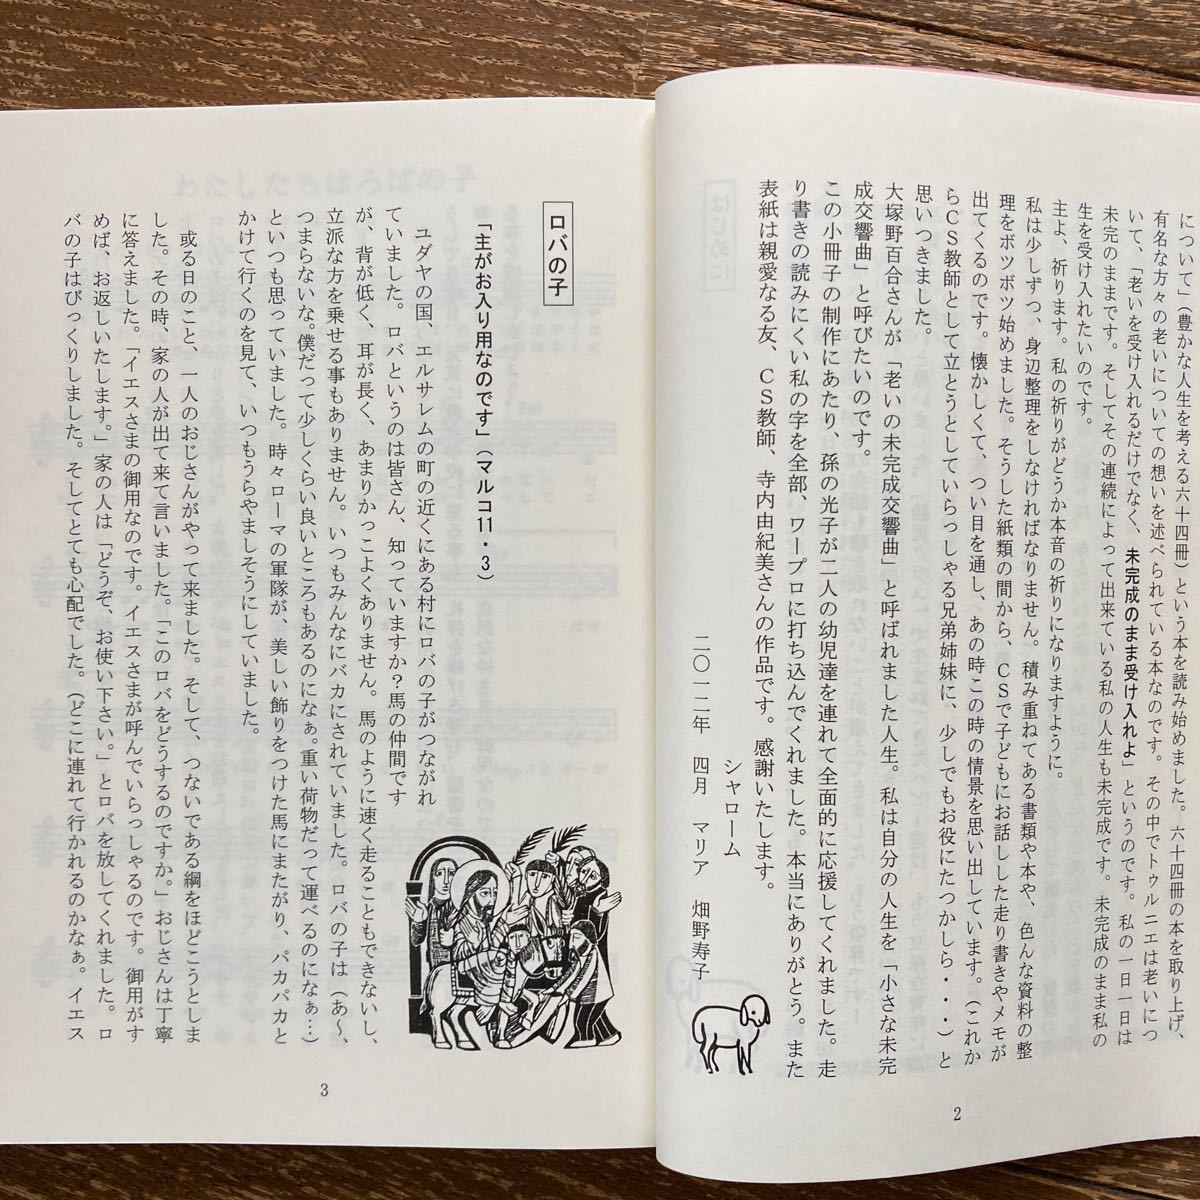 について」(豊かな人生を考える六十四冊)という本を読み始めました。六十四冊の本を取り上げ、
有名な方々の老いについての想いを述べられている本なのです。その中でトゥルニエは老いにつ
いて、「老いを受け入れるだけでなく、未完成のまま受け入れよ」というのです。私の一日一日は
未完のままです。そしてその連続によって出来ている私の人生も未完成です。未完成のまま私の
生を受け入れたいのです。
主よ、祈ります。私の祈りがどうか本音の祈りになりますように。
私は少しずつ、身辺整理をしなければなりません。積み重ねてある書類や本や、色んな資料の整
理をボツボツ始めました。そうした紙類の間から、CSで子どもにお話しした走り書きやメモが
出てくるのです。懐かしくて、つい目を通し、あの時この時の情景を思い出しています。(これか
らCS教師として立とうとしていらっしゃる兄弟姉妹に、少しでもお役にたつかしら・・・)と
思いつきました。
大塚野百合さんが「老いの未完成交響曲」と呼ばれました人生。私は自分の人生を「小さな未完
成交響曲」と呼びたいのです。
この小冊子の制作にあたり、孫の光子が二人の幼児達を連れて全面的に応援してくれました。走
り書きの読みにくい私の字を全部、ワープロに打ち込んでくれました。本当にありがとう。また
表紙は親愛なる友、CS教師、寺内由紀美さんの作品です。感謝いたします。
シャローム
二〇一二年 四月 マリア 畑野寿子
2
ロバの子
「主がお入り用なのです」(マルコ11・3)
ユダヤの国、エルサレムの町の近くにある村にロバの子がつながれ
ていました。ロバというのは皆さん、知っていますか?馬の仲間です
が、背が低く、耳が長く、あまりかっこよくありません。馬のように速く走ることもできないし、
立派な方を乗せる事もありません。いつもみんなにバカにされていました。ロバの子は(あ〜、
つまらないな。僕だって少しくらい良いところもあるのになぁ。重い荷物だって運べるのになぁ…)
といつも思っていました。時々ローマの軍隊が、美しい飾りをつけた馬にまたがり、パカパカと
かけて行くのを見て、いつもうらやましそうにしていました。
或る日のこと、一人のおじさんがやって来ました。そして、つないである綱をほどこうとしま
した。その時、家の人が出て来て言いました。「このロバをどうするのですか。」おじさんは丁寧
に答えました。「イエスさまの御用なのです。イエスさまが呼んでいらっしゃるのです。御用がす
めば、お返しいたします。」家の人は「どうぞ、お使い下さい。」とロバを放してくれました。ロ
バの子はびっくりしました。そしてとても心配でした。(どこに連れて行かれるのかなぁ。イエス
3